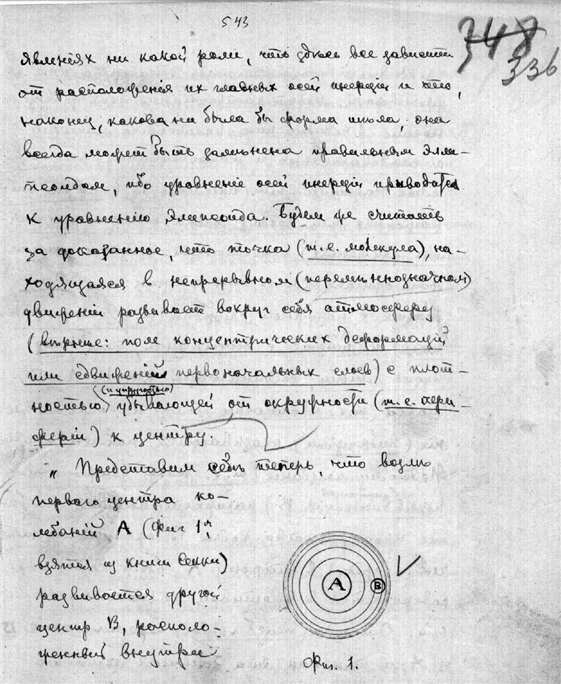 543
348
336
явленіях ни какой роли, что здѣсь все зависит
от расположенія их главных осей инерціи и что,
наконец, какова ни была бы форма тѣла, она
всегда может быть замѣнена правильным элли-
псоидом, ибо уравненіе осей инерціи приводится
к уравненію эллипсоида. Будем же считать
за доказанное, что точка (т.е. молекула), на-
ходящаяся в непрерывном (перемѣннозначном)
движеніи развивает вокруг себя атмосферу
(вѣрнѣе: поле концентрических деформацій
или сдвиженій первоначальных слоев) с плот-
(и упругостью)
ностью убывающей от окружности (т.е. пери-
феріи) к центру.
„ Представим себѣ теперь, что возлѣ
перваго центра ко-
лебаній А (Фиг 1,
взятая из книги Секки)
развивается другой
центр В, располо-
женный внутри
А
В
Фиг. 1.